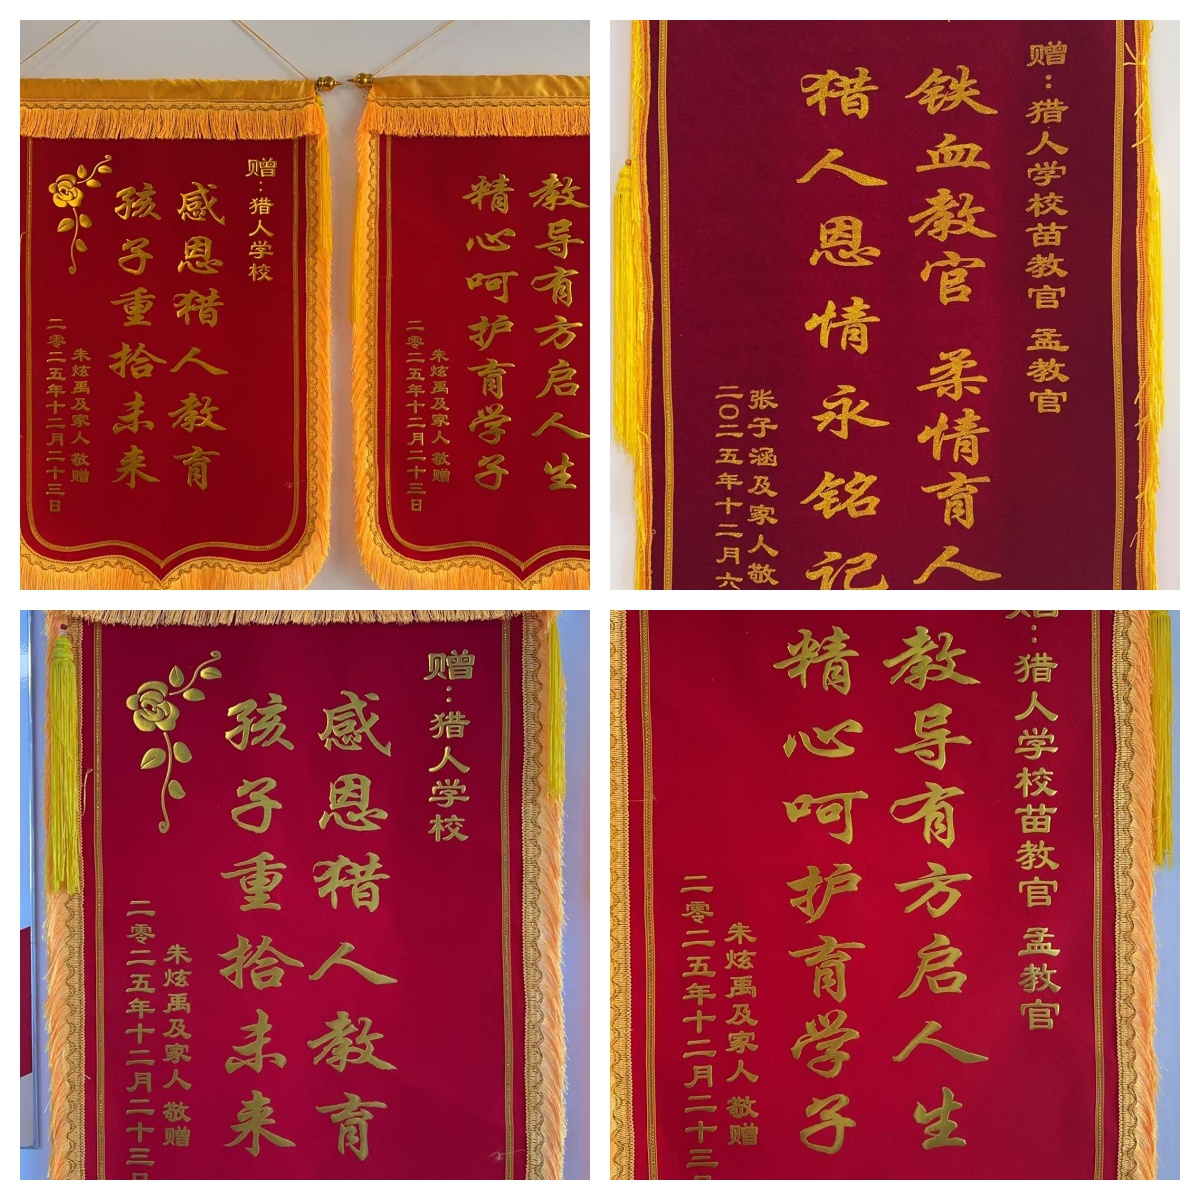 赠：猎人学校
感恩猎人教育
孩子重拾未来
朱炫禹及家人 敬赠
二零二五年十二月二十三日
教导有方启人生
精心呵护育学子
朱炫禹及家人 敬赠
二零二五年十二月二十三日
赠：猎人学校苗教官 孟教官
铁血教官 柔情育人
猎人恩情永铭记
张子涵及家人敬
二〇二五年十二月六
赠：猎人学校
感恩猎人教育
孩子重拾未来
朱炫禹及家人 敬赠
二零二五年十二月二十三日
赠：猎人学校苗教官 孟教官
教导有方启人生
精心呵护育学子
朱炫禹及家人 敬赠
二零二五年十二月二十三